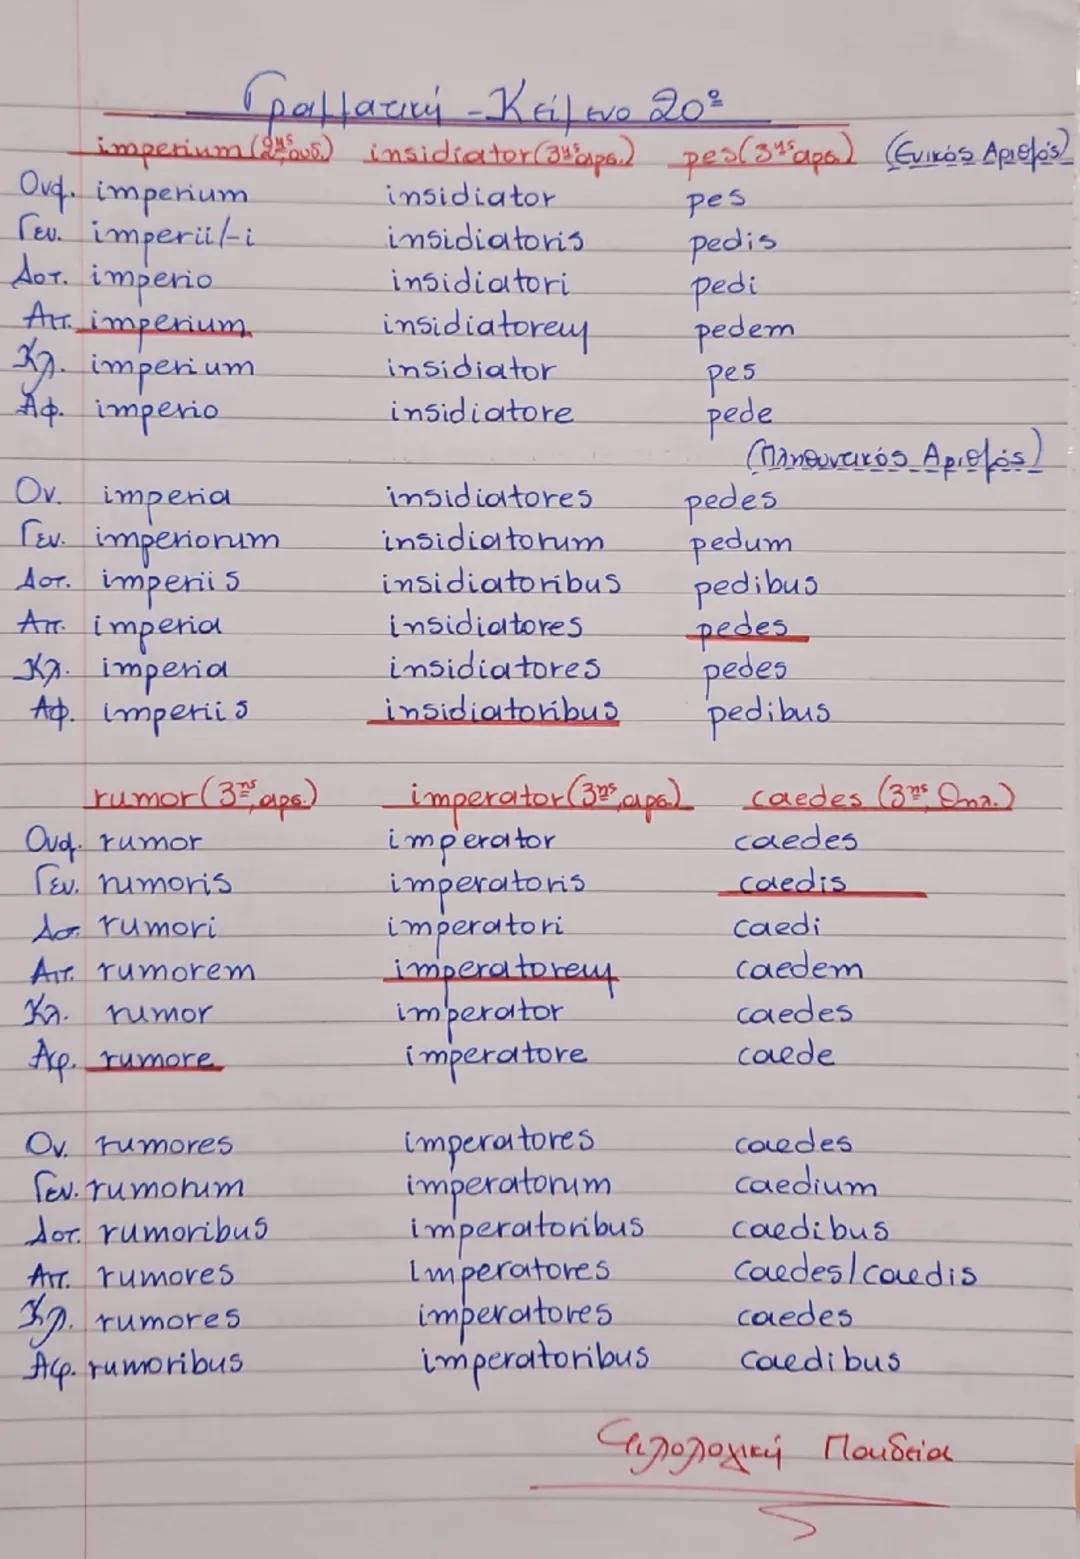 Γραμματική - Κείμενο 20º
imperium (2ης, ουδ.) insidiator (3ης, αρσ.) pes (3ης, αρσ.) (Ενικός Αριθμός)
Ονομ. imperium insidiator pes
Γεν. imperii/-i insidiatoris pedis
Δοτ. imperio insidiatori pedi
Αιτ. imperium insidiatorem pedem
Κλ. imperium insidiator pes
Αφ. imperio insidiatore pede
(Πληθυντικός Αριθμός)
Ον. imperia insidiatores pedes
Γεν. imperiorum insidiatorum pedum
Δοτ. imperiis insidiatoribus pedibus
Αιτ. imperia insidiatores pedes
Κλ. imperia insidiatores pedes
Αφ. imperiis insidiatoribus pedibus
rumor (3ης, αρσ.) imperator (3ης, αρσ.) caedes (3ης θηλ.)
Ονομ. rumor imperator caedes
Γεν. rumoris imperatoris caedis
Δοτ. rumori imperatori caedi
Αιτ. rumorem imperatorem caedem
Κλ. rumor imperator caedes
Αφ. rumore imperatore caede
Ον. rumores imperatores caedes
Γεν. rumorum imperatorum caedium
Δοτ. rumoribus imperatoribus caedibus
Αιτ. rumores imperatores caedes/caedis
Κλ. rumores imperatores caedes
Αφ. rumoribus imperatoribus caedibus
Φιλολογική Παιδεία